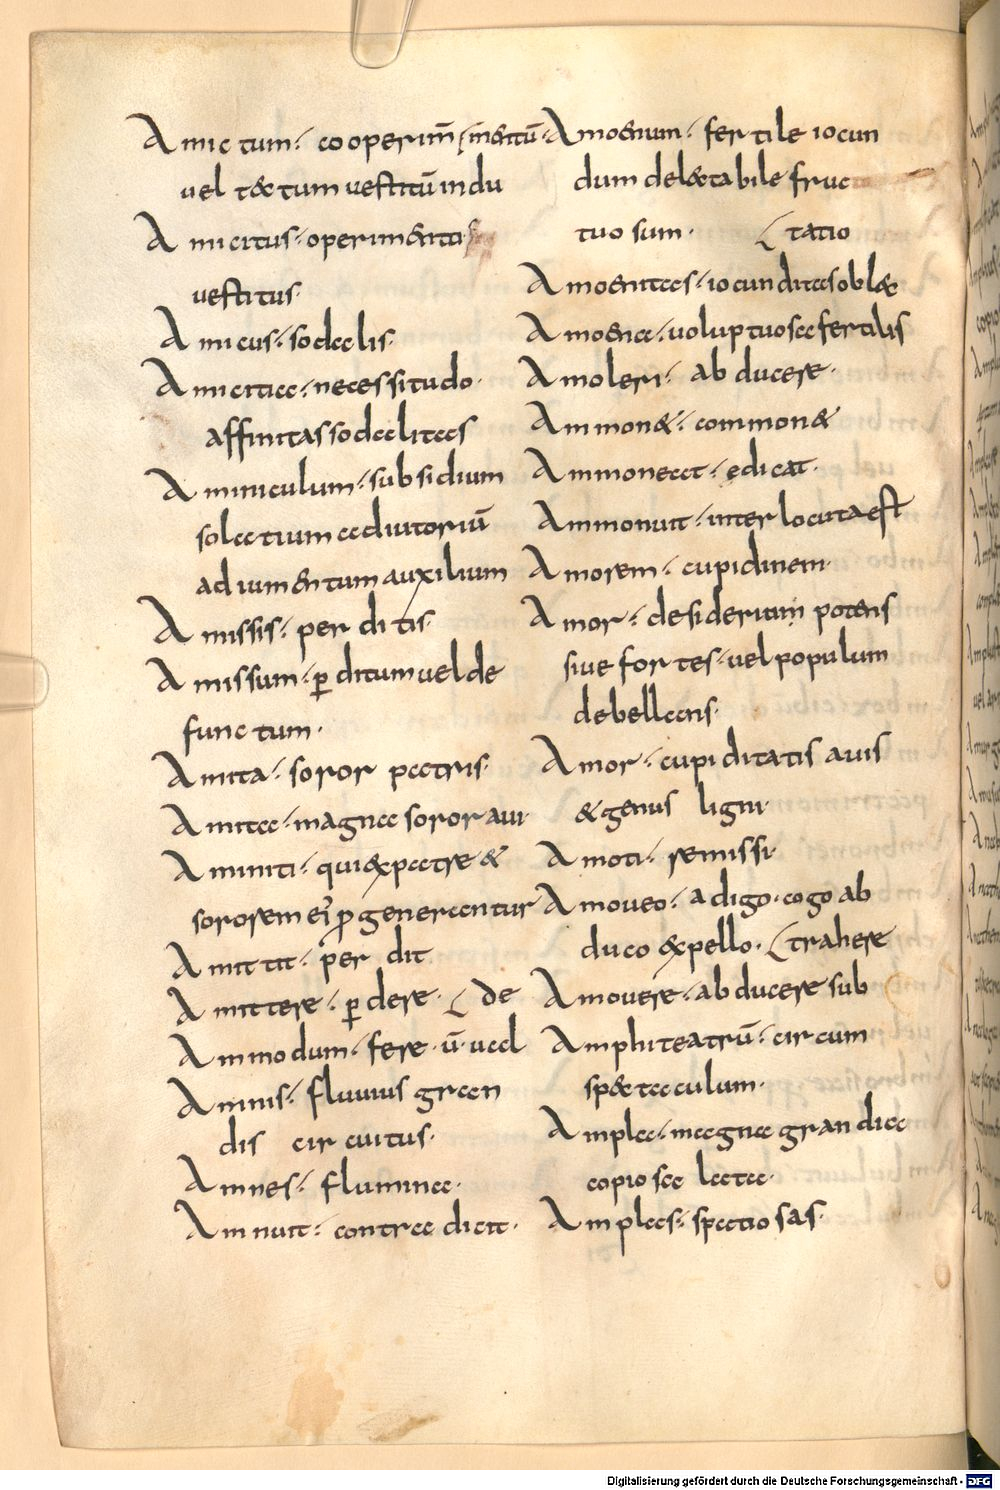 Amictum· cooperim̄ · indu
mentū·
vel tectum vestitū
Amictus· operimenti
vestitus·
Amicus· sodalis·
Amicitia· necessitudo·
affinitas sodalitas
Aminiculum· subsidium
solacium adiutoriū
adiumentum auxilium
Amissis· per ditis·
Amissum· ꝑditum vel de
functum·
Amita· soror patris·
Amita· magna soror aui·
Amiti· qui ex patre &
sororem eiꝰ ꝓgenerantur
Amittit· per dit
Amittere· ꝑdere· de
Ammodum· fere· ū· ual
Amnis· fluuius gran
dis circuitus·
Amnes· flumina·
Amnuit· contra dicit·
Amoenum· fertile iocun
dum delectabile fruc
tuosum· tatio
Amoenitas· iocunditas oblec
Amoena· voluptuosa fertilis
Amoleri· ab ducere·
Ammon&· common&
Ammoneat· edicat·
Ammonuit· inter locuta est
Amorem· cupidinem·
Amor· desiderium potens
sive fortes· vel populum
debellans·
Amor· cupiditatis avis
& genus ligni·
Amoti· remissi·
Amoveo· adigo· cogo ab
duco expello· trahere
Amovere· ab ducere sub
Amphiteatrū· circum
spectaculum·
Ampla· magna grandia
copiosa lata·
Amplas· spatiosas·
Digitalisierung gefördert durch die Deutsche Forschungsgemeinschaft - DFG